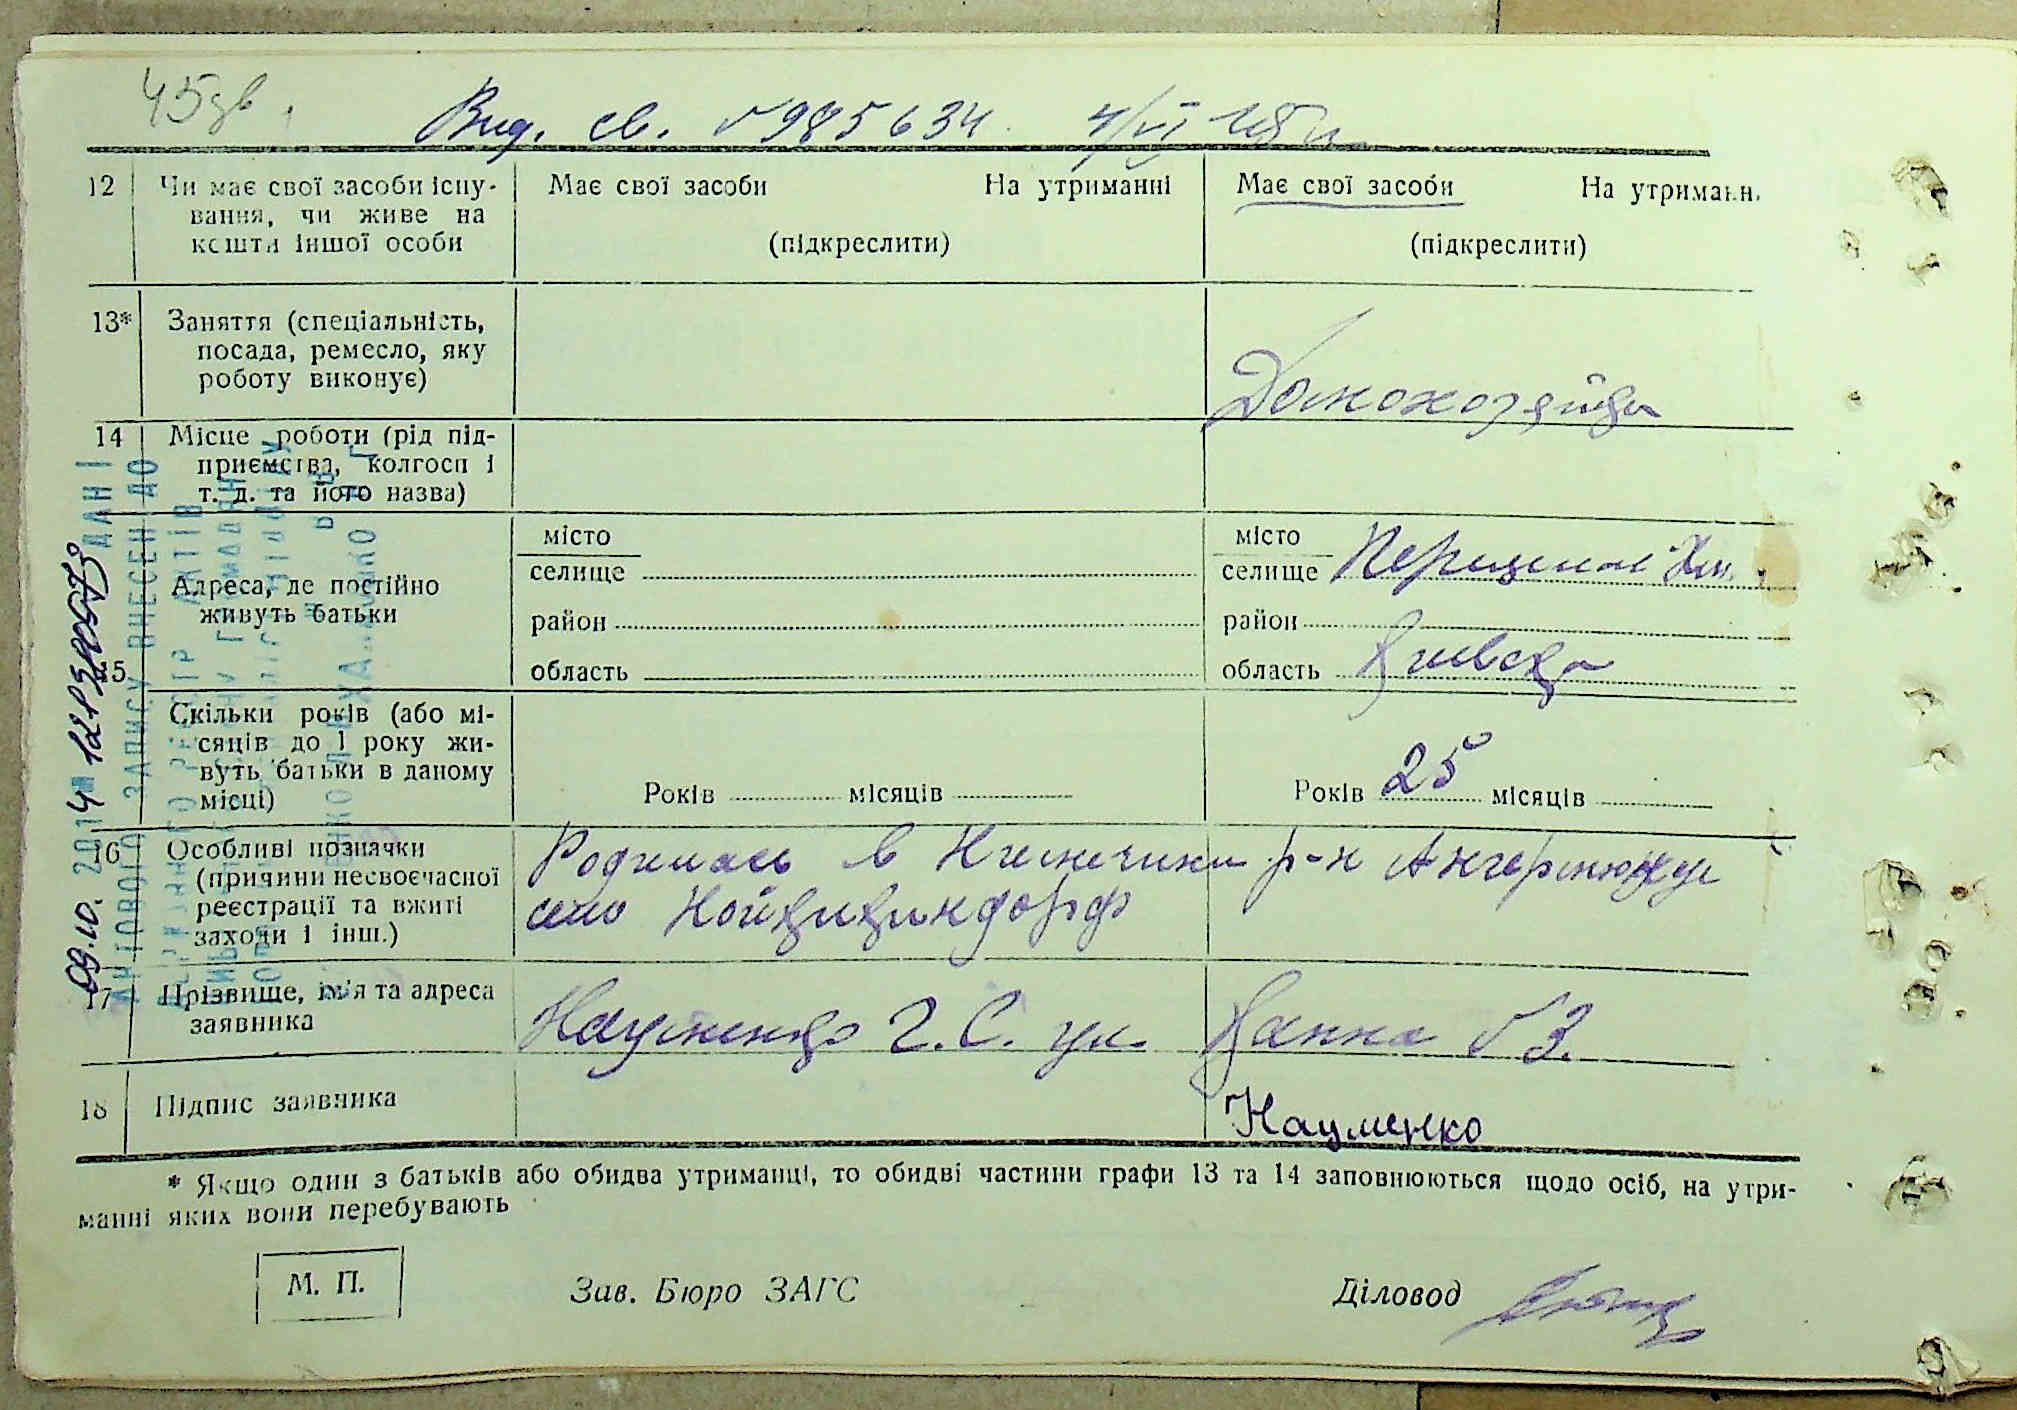 45
Вид. св. № 985634 4/VI
12 Чи має свої засоби існу-
вання, чи живе на
кошти іншої особи
Має свої засоби На утриманні
(підкреслити)
Має свої засоби На утриманн.
(підкреслити)
13* Заняття (спеціальність,
посада, ремесло, яку
роботу виконує)
Домохозяйка
14 Місце роботи (рід під-
приємства, колгосп і
т. д. та його назва)
15 Адреса, де постійно
живуть батьки
місто
селище
район
область
місто
селище
район
область Киевска
Скільки років (або мі-
сяців до 1 року жи-
вуть батьки в даному
місці)
Років місяців
Років 25 місяців
16 Особливі позначки
(причини несвоєчасної
реєстрації та вжиті
заходи і інш.)
Родилась в р-н
село
17 Прізвище, ім'я та адреса
заявника
Науменко Г. С. ул. № 3.
18 Підпис заявника
Науменко
* Якщо один з батьків або обидва утриманці, то обидві частини графи 13 та 14 заповнюються щодо осіб, на утри-
манні яких вони перебувають
М. П.
Зав. Бюро ЗАГС
Діловод
ДАНІ
АКТОВОГО ЗАПИСУ ВНЕСЕНІ ДО
09.10. 2014